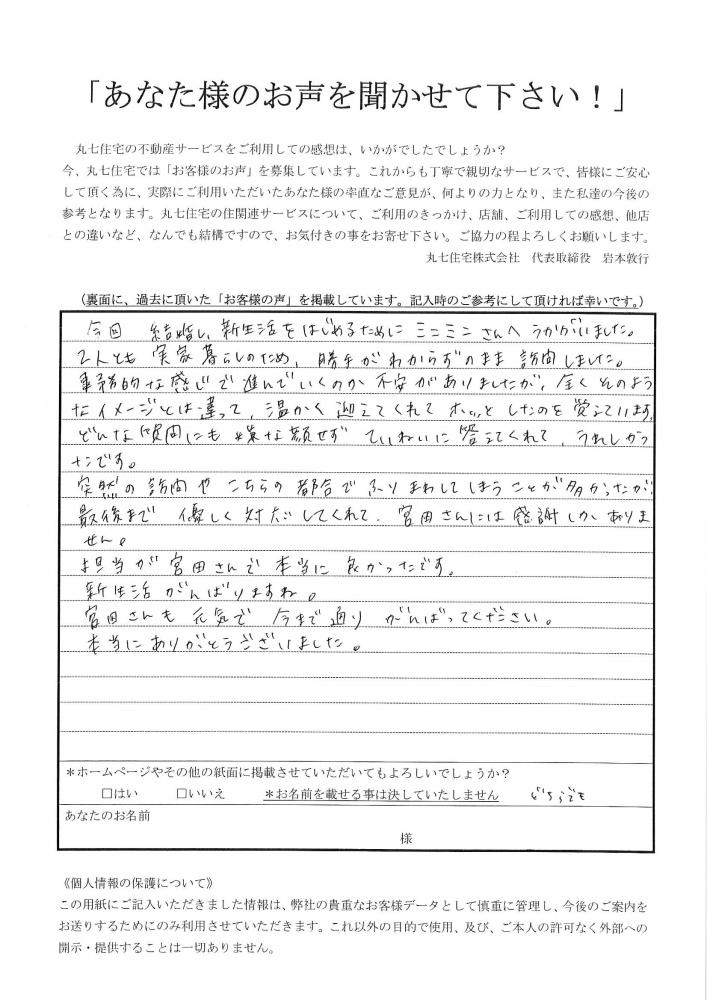 「あなた様のお声を聞かせて下さい！」
丸七住宅の不動産サービスをご利用しての感想は、いかがでしたでしょうか？
今、丸七住宅では「お客様のお声」を募集しています。これからも丁寧で親切なサービスで、皆様にご安心
して頂く為に、実際にご利用いただいたあなた様の率直なご意見が、何よりの力となり、また私達の今後の
参考となります。丸七住宅の住関連サービスについて、ご利用のきっかけ、店舗、ご利用しての感想、他店
との違いなど、なんでも結構ですので、お気付きの事をお寄せ下さい。ご協力の程よろしくお願いします。
丸七住宅株式会社　代表取締役　岩本敦行
（裏面に、過去に頂いた「お客様の声」を掲載しています。記入時のご参考にして頂ければ幸いです。）
今回 結婚し、新生活をはじめるために ミニミニさんへ うかがいました。
2人とも 実家暮らしのため、勝手がわからずのまま 訪問しました。
事務的な感じで進んでいくのか 不安がありましたが、全くそのよう
なイメージとは違って、温かく 迎えてくれて ホッと したのを 覚えています。
どんな質問にも 嫌な顔せず ていねいに答えてくれて、うれしかっ
たです。
突然の訪問や こちらの 都合で ふりまわしてしまう ことが多かったが
最後まで 優しく 対応してくれて、宮田さんには 感謝しか ありま
せん。
担当が 宮田さんで 本当に 良かったです。
新生活 がんばりますね。
宮田さんも 元気で 今まで通り がんばってください。
本当にありがとうございました。
＊ホームページやその他の紙面に掲載させていただいてもよろしいでしょうか？
□はい　□いいえ　＊お名前を載せる事は決していたしません　どちらでも
あなたのお名前
様
《個人情報の保護について》
この用紙にご記入いただきました情報は、弊社の貴重なお客様データとして慎重に管理し、今後のご案内を
お送りするためにのみ利用させていただきます。これ以外の目的で使用、及び、ご本人の許可なく外部への
開示・提供することは一切ありません。